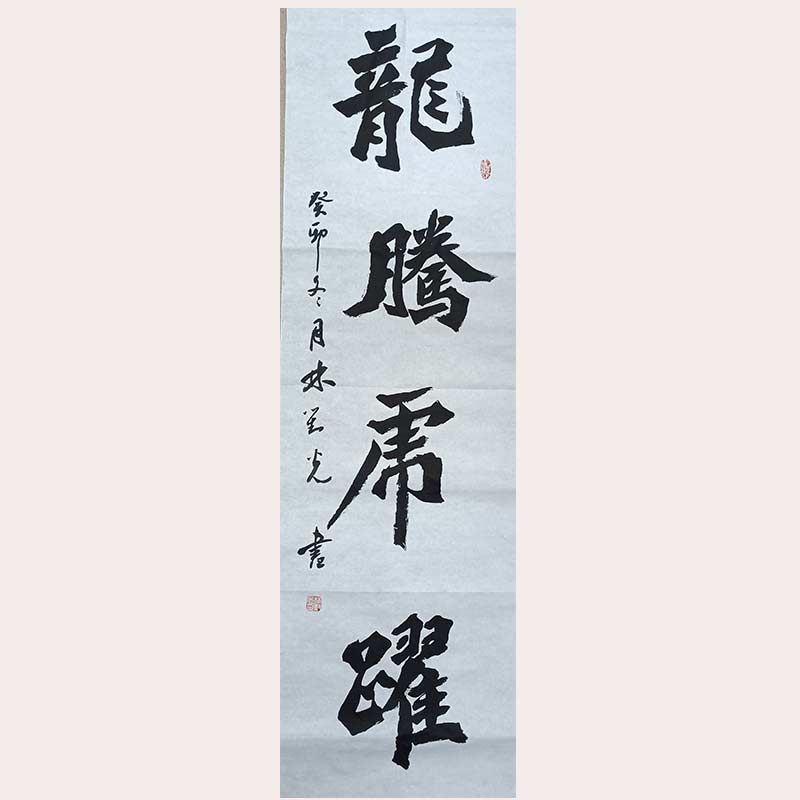 龍騰虎躍
癸卯冬月林光書